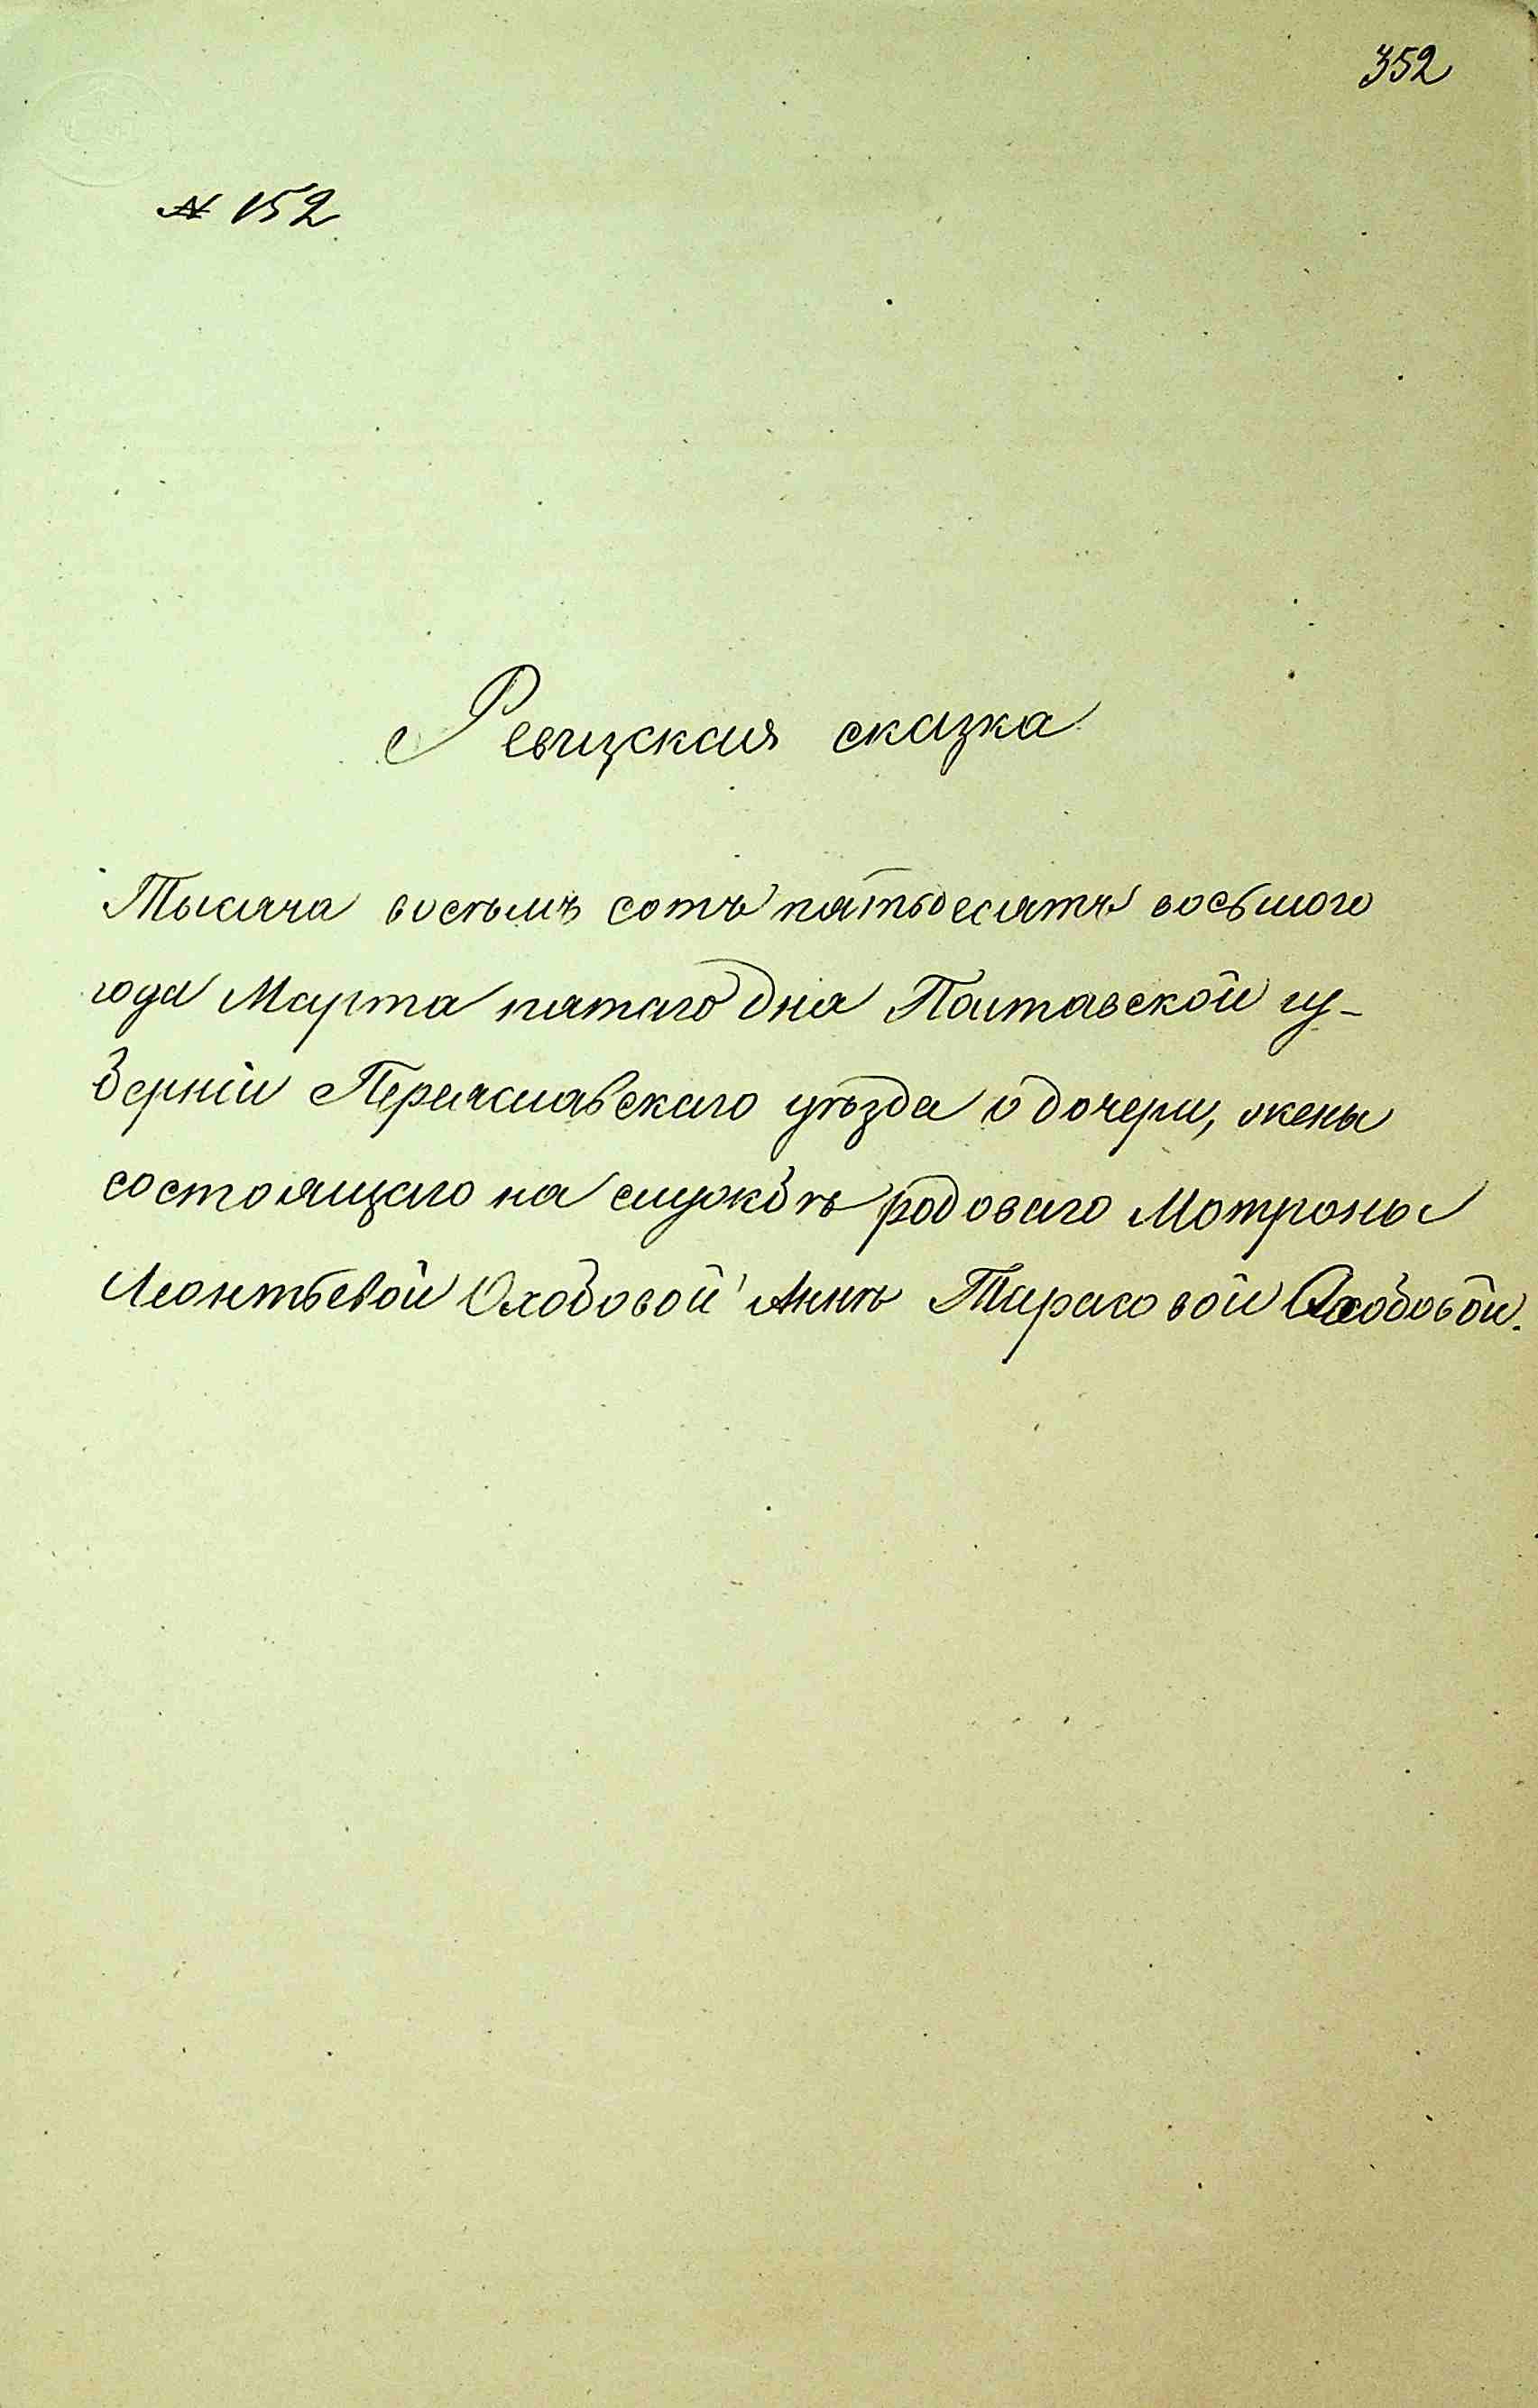 352
№ 152
Ревизская сказка
Тысяча восемь сотъ пятьдесятъ восьмого
года Марта пятаго дня Полтавской гу-
берніи Переяславскаго уѣзда о дочери, жены
состоящаго на службѣ рядоваго Мотроны
Леонтьевой Охобовой Аннѣ Тарасовой Охобовой.